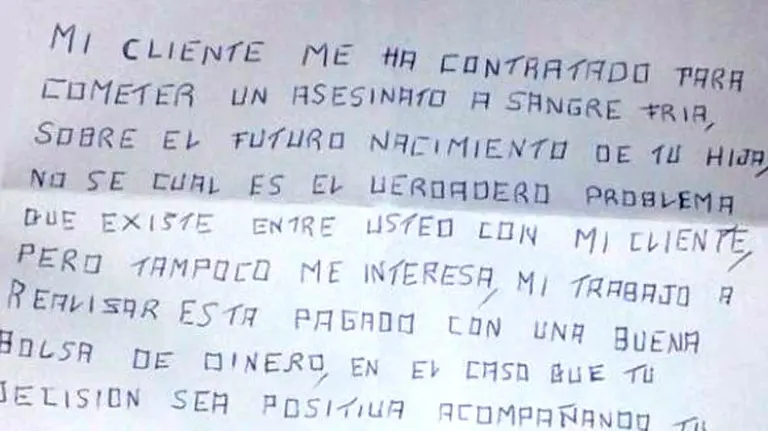 MI CLIENTE ME HA CONTRATADO PARA
COMETER UN ASESINATO A SANGRE FRIA,
SOBRE EL FUTURO NACIMIENTO DE TU HIJA,
NO SE CUAL ES EL VERDADERO PROBLEMA
QUE EXISTE ENTRE USTED CON MI CLIENTE,
PERO TAMPOCO ME INTERESA, MI TRABAJO A
REALISAR ESTA PAGADO CON UNA BUENA
BOLSA DE DINERO, EN EL CASO QUE TU
DECISION SEA POSITIVA ACOMPAÑANDO TU